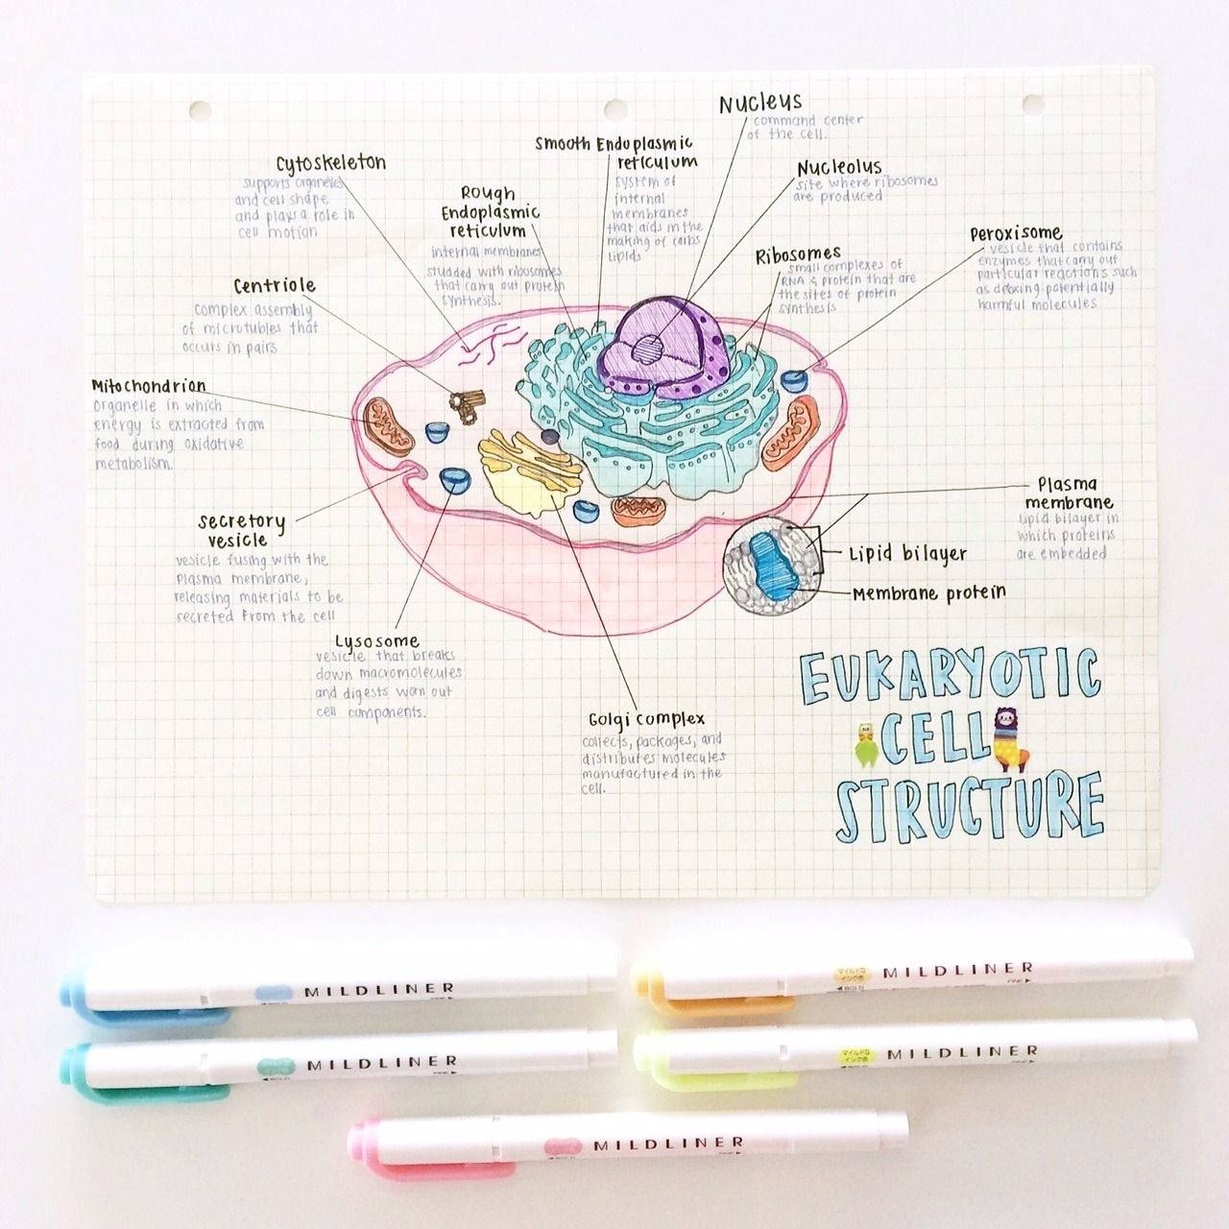 Nucleus
command center
of the cell.
Smooth Endoplasmic
reticulum
system of
internal
membranes
that aids in the
making of carbs
lipids
Cytoskeleton
supports organelles
and cell shape
and plays a role in
cell motion
Rough
Endoplasmic
reticulum
internal membranes
studded with ribosomes
that carry out protein
synthesis.
Nucleolus
site where ribosomes
are produced
Ribosomes
small complexes of
RNA & protein that are
the sites of protein
synthesis
Peroxisome
vesicle that contains
enzymes that carry out
particular reactions such
as detoxing potentially
harmful molecules
Centriole
complex assembly
of microtubles that
occurs in pairs
Mitochondrian
organelle in which
energy is extracted from
food during oxidative
metabolism.
Secretory
vesicle
vesicle fusing with the
plasma membrane,
releasing materials to be
secreted from the cell
Plasma
membrane
lipid bilayer in
which proteins
are embedded
Lipid bilayer
Membrane protein
Lysosome
vesicle that breaks
down macromolecules
and digests worn out
cell components.
Golgi complex
collects, packages, and
distributes molecules
manufactured in the
cell.
EUKARYOTIC
CELL
STRUCTURE
MILDLINER
マイルドな
インク色
MILDLINER
MILDLINER
マイルドな
インク色
MILDLINER
MILDLINER